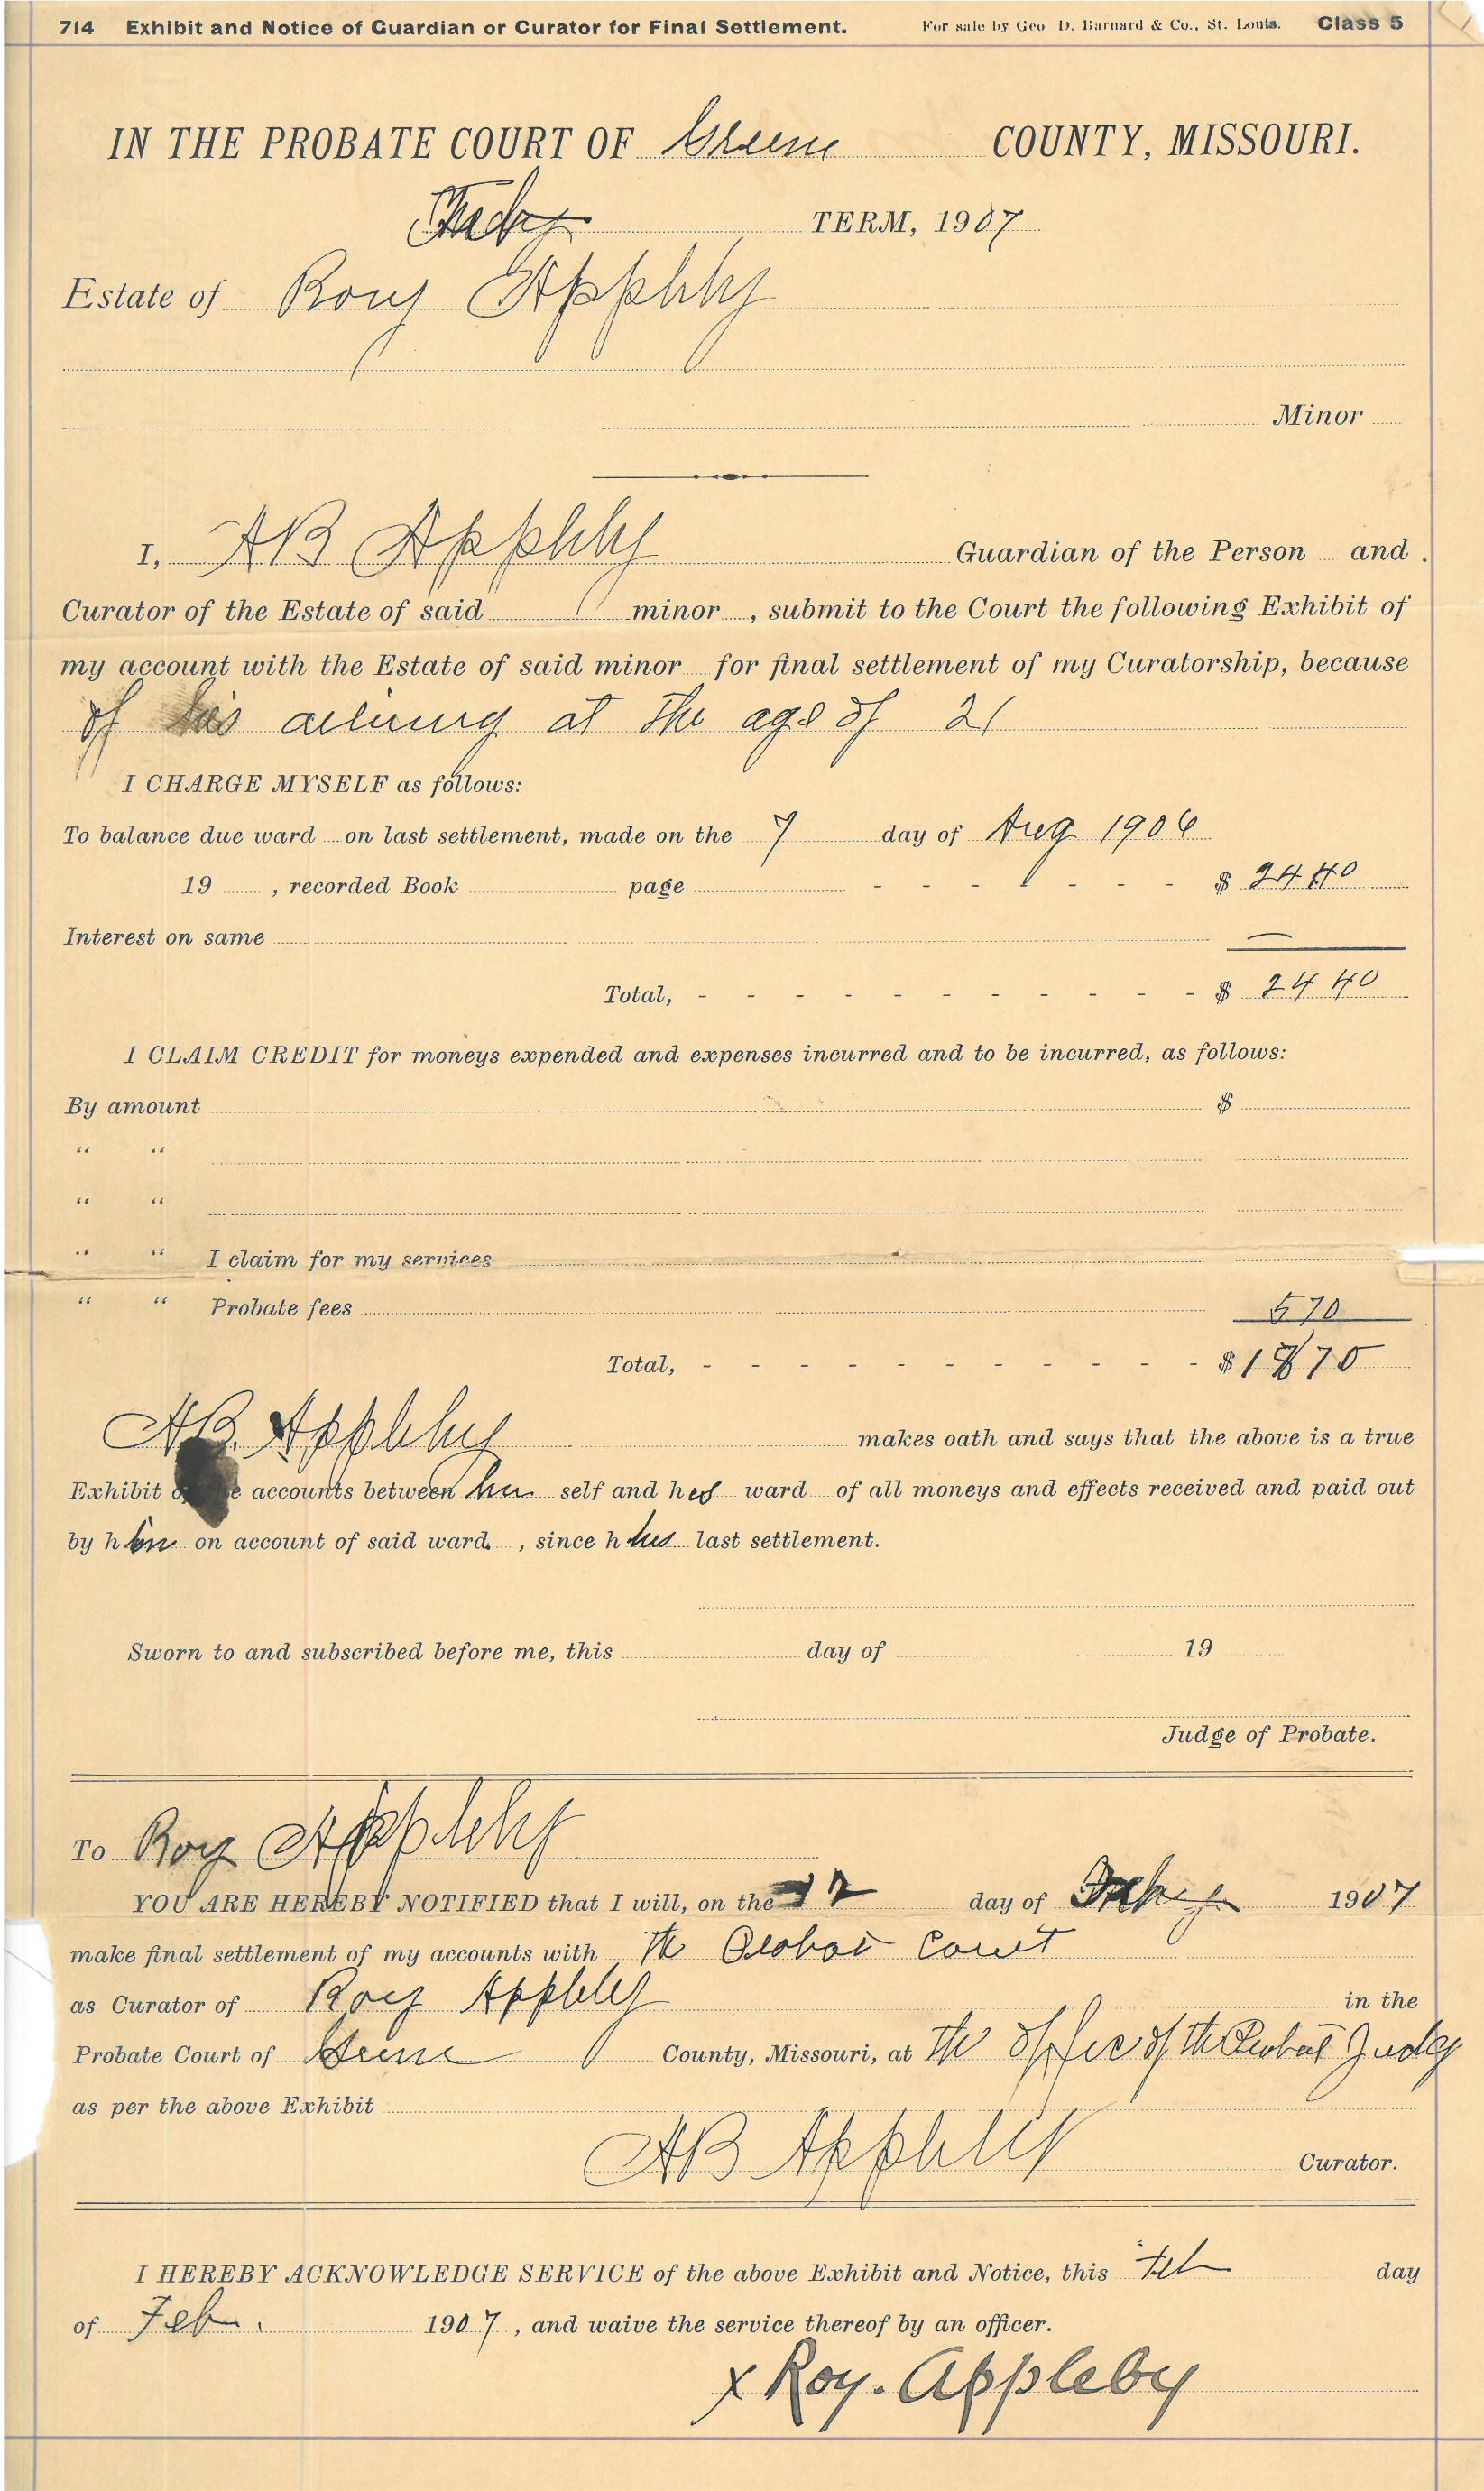 714 Exhibit and Notice of Guardian or Curator for Final Settlement. For sale by Geo D. Barnard & Co., St. Louis. Class 5
IN THE PROBATE COURT OF Greene COUNTY, MISSOURI.
TERM, 1907
Estate of Roy Appleby
Minor
I, AB Appleby Guardian of the Person and
Curator of the Estate of said minor , submit to the Court the following Exhibit of
my account with the Estate of said minor for final settlement of my Curatorship, because
of his at the age of 21
I CHARGE MYSELF as follows:
To balance due ward on last settlement, made on the 7 day of Aug 1906
19 , recorded Book page - - - - - - - $ 24 40
Interest on same —
Total, - - - - - - - - - - - $ 24 40
I CLAIM CREDIT for moneys expended and expenses incurred and to be incurred, as follows:
By amount $
" "
" "
" " I claim for my services
" " Probate fees 5 70
Total, - - - - - - - - - - - $ 18 70
AB. Appleby makes oath and says that the above is a true
Exhibit accounts between him self and his ward of all moneys and effects received and paid out
by h im on account of said ward , since h his last settlement.
Sworn to and subscribed before me, this day of 19
Judge of Probate.
To Roy Appleby
YOU ARE HEREBY NOTIFIED that I will, on the 12 day of 1907
make final settlement of my accounts with the Probat Court
as Curator of Roy Appleby in the
Probate Court of Greene County, Missouri, at the offic of the Probat Judg
as per the above Exhibit
AB Appleby Curator.
I HEREBY ACKNOWLEDGE SERVICE of the above Exhibit and Notice, this day
of Feb. 1907 , and waive the service thereof by an officer.
x Roy. Appleby